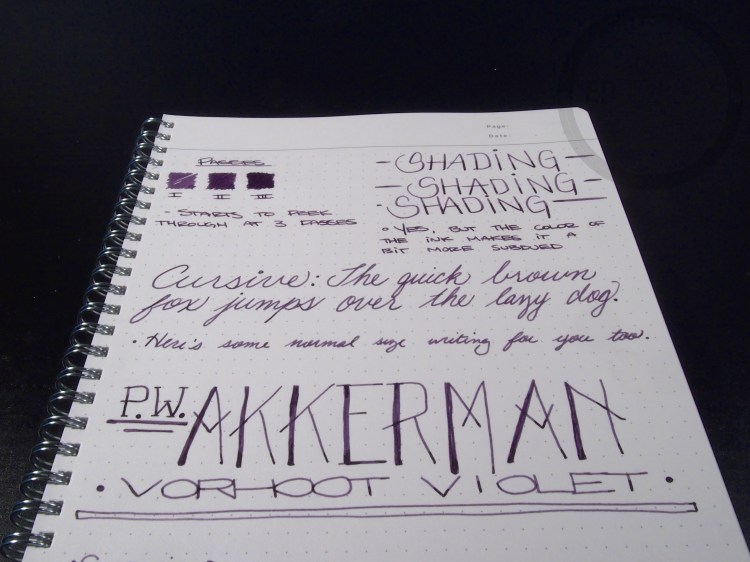 Page:
Date:
PASSES
I II III
• STARTS TO PEEK
THROUGH AT 3 PASSES
-SHADING-
-SHADING-
-SHADING-
• YES, BUT THE COLOR OF
THE INK MAKES IT A
BIT MORE SUBDUED
Cursive: The quick brown
fox jumps over the lazy dog.
• Here's some normal size writing for you too.
P.W. AKKERMAN
• VORHOOT VIOLET •